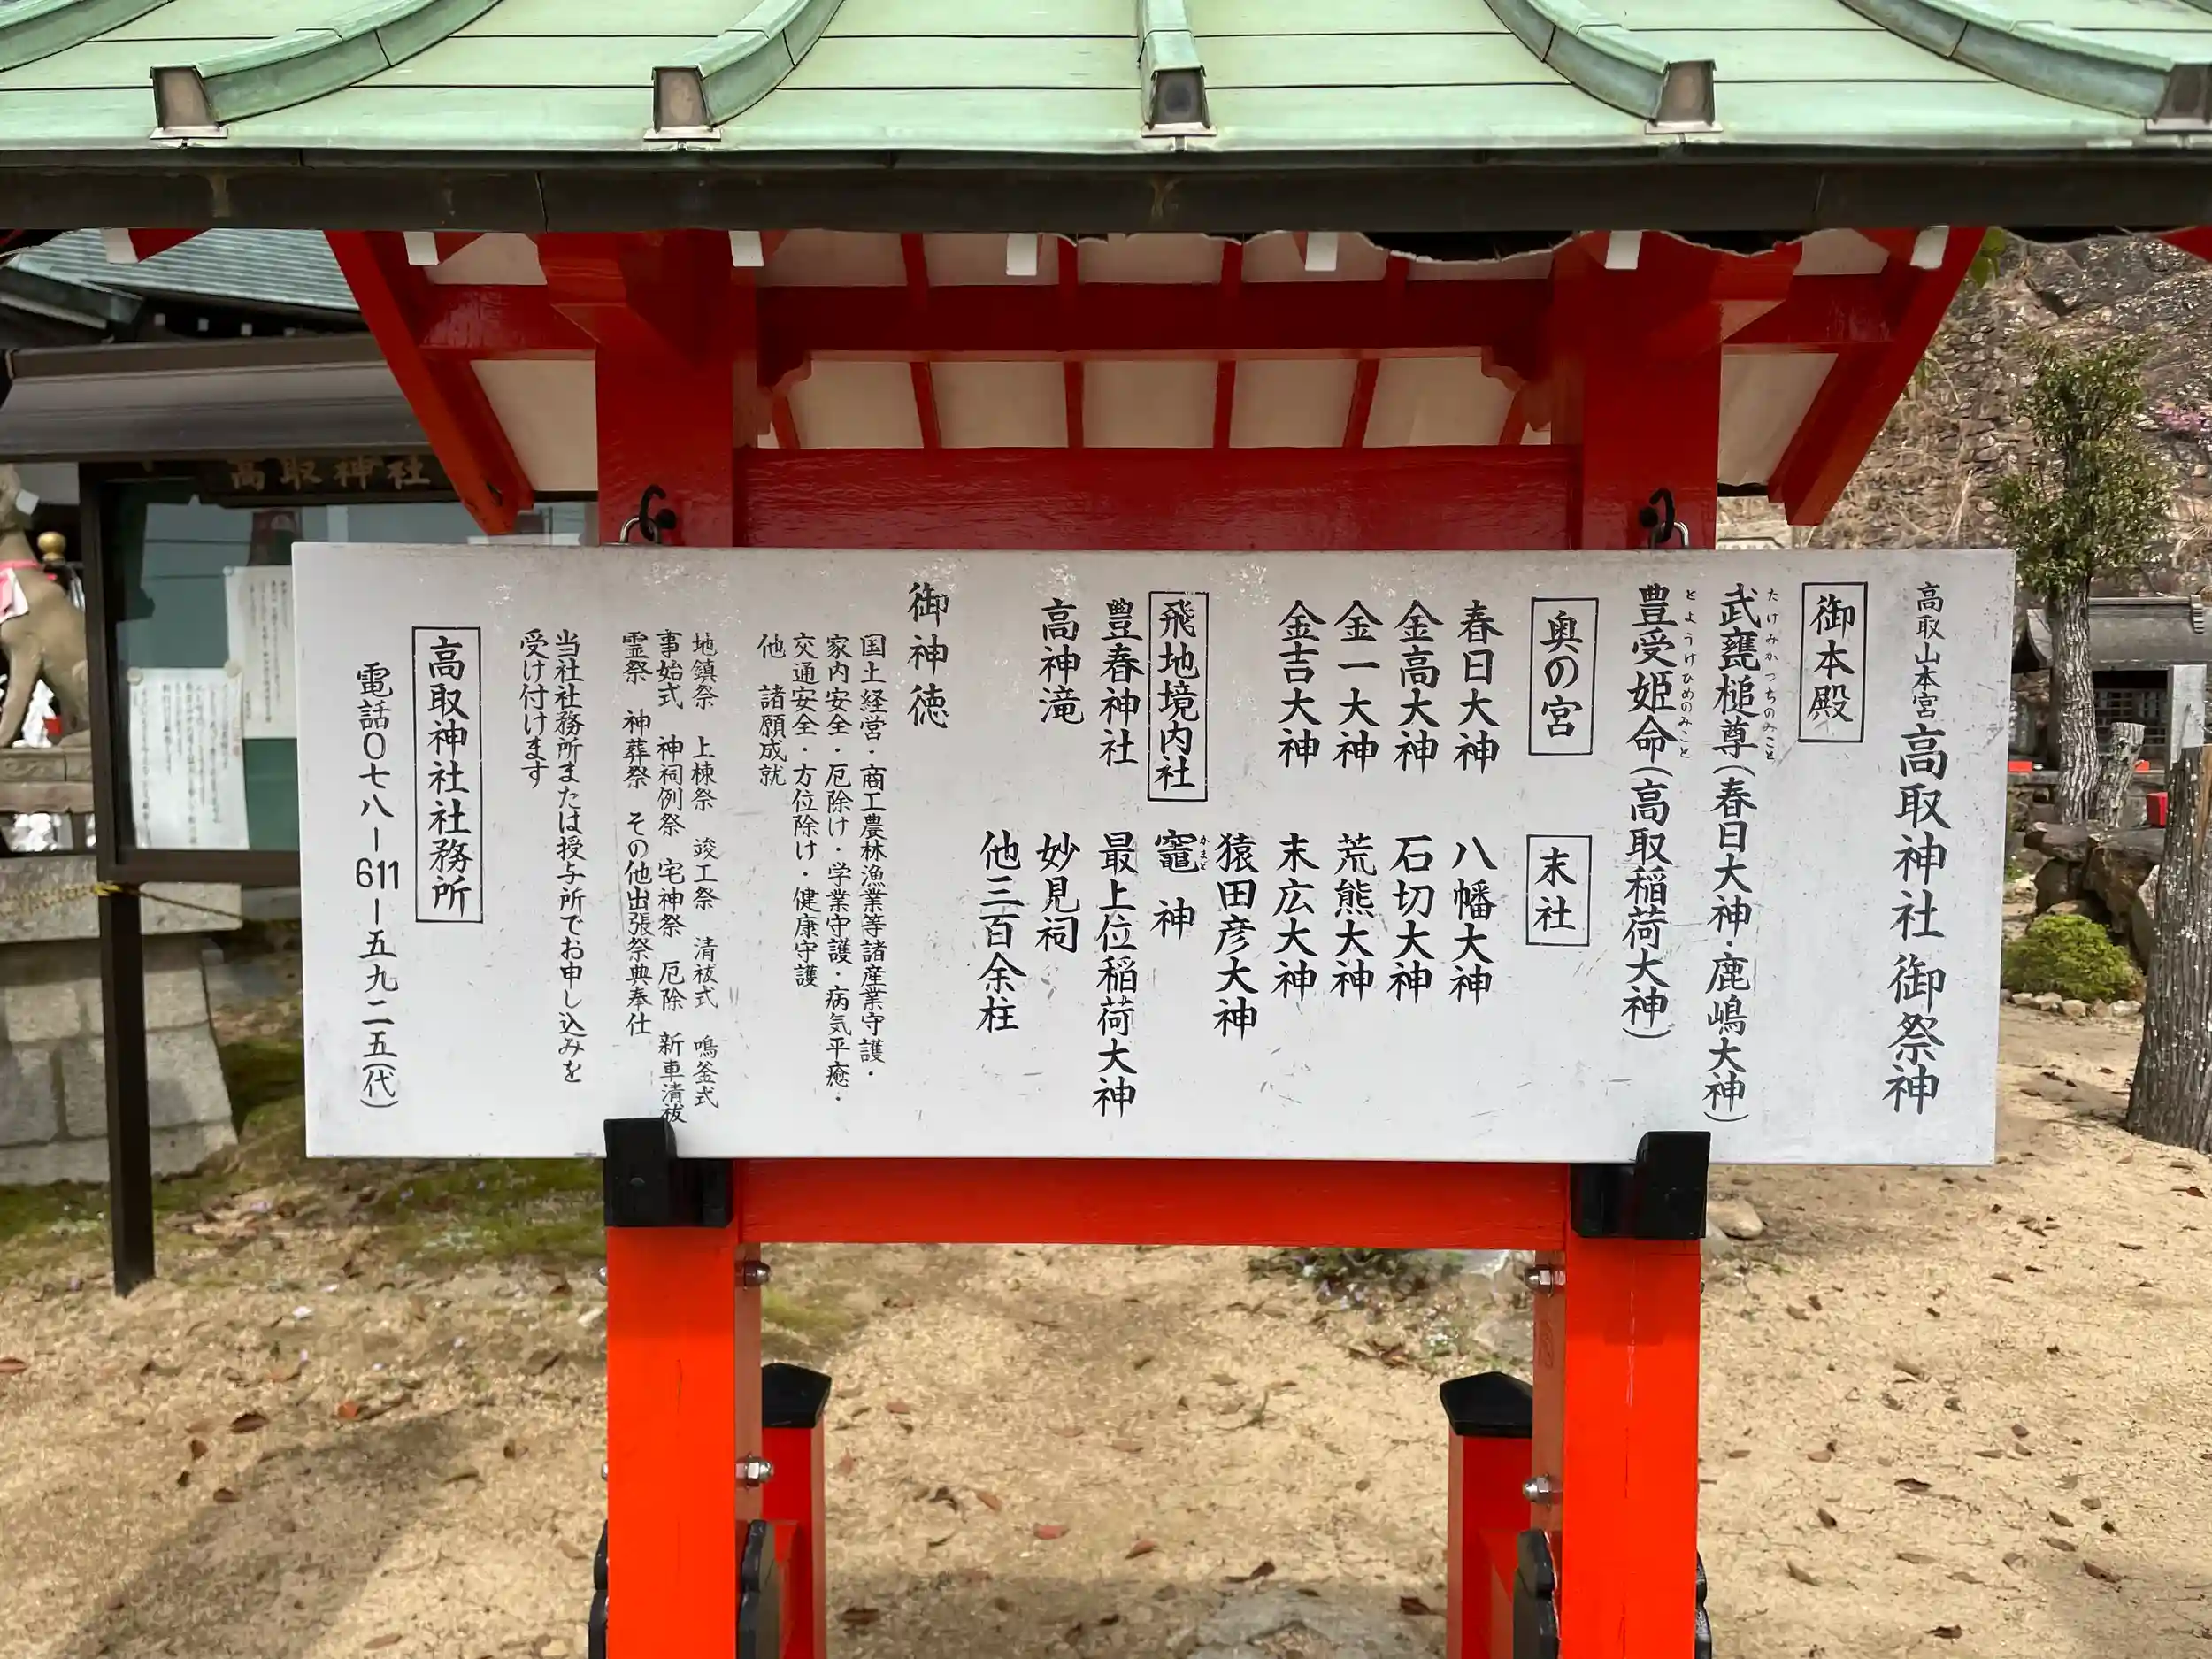 高取山本宮 高取神社 御祭神
御本殿
武甕槌尊（春日大神・鹿嶋大神）
たけみかづちのみこと
豊受姫命（高取稲荷大神）
とようけひめのみこと
奥の宮
春日大神
金高大神
金一大神
金吉大神
飛地境内社
豊春神社
高神滝
末社
八幡大神
石切大神
荒熊大神
末広大神
猿田彦大神
竈神
かまど
最上位稲荷大神
妙見祠
他三百余柱
御神徳
国土経営・商工農林漁業等諸産業守護・
家内安全・厄除け・学業守護・病気平癒・
交通安全・方位除け・健康守護
他 諸願成就
地鎮祭 上棟祭 竣工祭 清祓式 鳴釜式
事始式 神祠例祭 宅神祭 厄除 新車清祓
霊祭 神葬祭 その他出張祭典奉仕
当社社務所または授与所でお申し込みを
受け付けます
高取神社社務所
電話〇七八ー611ー五九二五（代）
高取神社